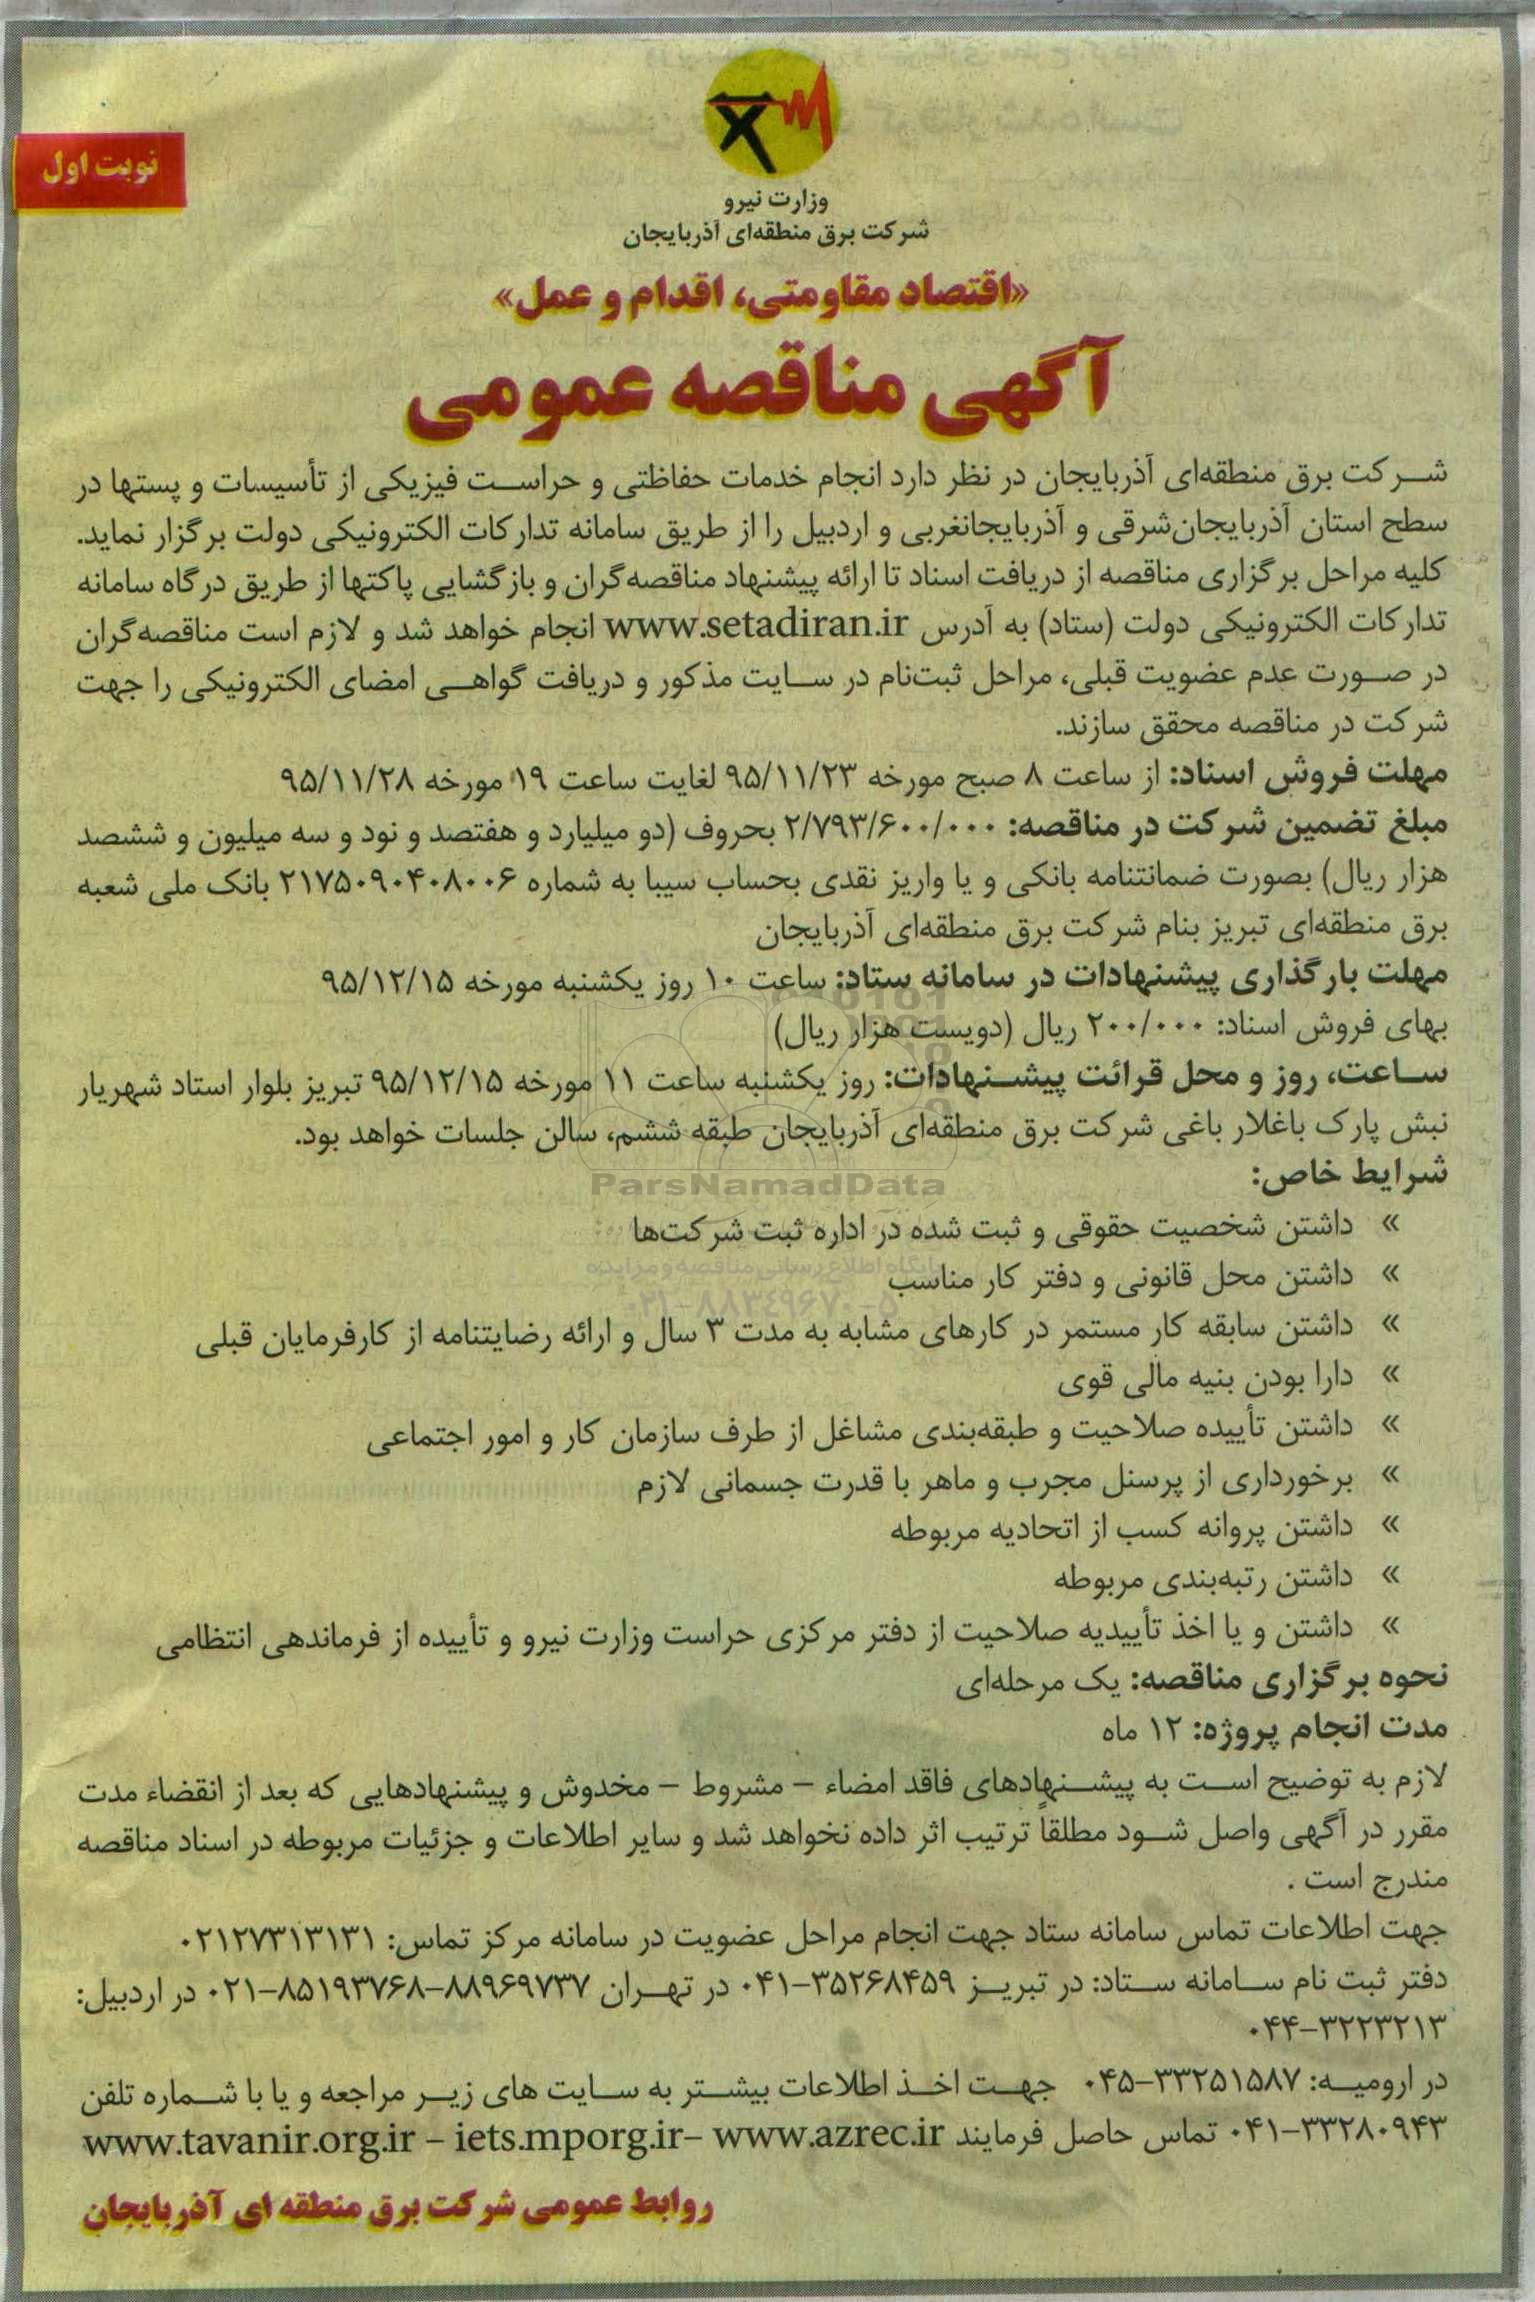 نوبت اول
وزارت نیرو
شرکت برق منطقه‌ای آذربایجان
«اقتصاد مقاومتی، اقدام و عمل»
آگهی مناقصه عمومی
شرکت برق منطقه‌ای آذربایجان در نظر دارد انجام خدمات حفاظتی و حراست فیزیکی از تأسیسات و پستها در
سطح استان آذربایجان‌شرقی و آذربایجانغربی و اردبیل را از طریق سامانه تدارکات الکترونیکی دولت برگزار نماید.
کلیه مراحل برگزاری مناقصه از دریافت اسناد تا ارائه پیشنهاد مناقصه‌گران و بازگشایی پاکتها از طریق درگاه سامانه
تدارکات الکترونیکی دولت (ستاد) به آدرس www.setadiran.ir انجام خواهد شد و لازم است مناقصه‌گران
در صورت عدم عضویت قبلی، مراحل ثبت‌نام در سایت مذکور و دریافت گواهی امضای الکترونیکی را جهت
شرکت در مناقصه محقق سازند.
مهلت فروش اسناد: از ساعت ۸ صبح مورخه ۹۵/۱۱/۲۳ لغایت ساعت ۱۹ مورخه ۹۵/۱۱/۲۸
مبلغ تضمین شرکت در مناقصه: ۲/۷۹۳/۶۰۰/۰۰۰ بحروف (دو میلیارد و هفتصد و نود و سه میلیون و ششصد
هزار ریال) بصورت ضمانتنامه بانکی و یا واریز نقدی بحساب سیبا به شماره ۲۱۷۵۰۹۰۴۰۸۰۰۶ بانک ملی شعبه
برق منطقه‌ای تبریز بنام شرکت برق منطقه‌ای آذربایجان
مهلت بارگذاری پیشنهادات در سامانه ستاد: ساعت ۱۰ روز یکشنبه مورخه ۹۵/۱۲/۱۵
بهای فروش اسناد: ۲۰۰/۰۰۰ ریال (دویست هزار ریال)
ساعت، روز و محل قرائت پیشنهادات: روز یکشنبه ساعت ۱۱ مورخه ۹۵/۱۲/۱۵ تبریز بلوار استاد شهریار
نبش پارک باغلار باغی شرکت برق منطقه‌ای آذربایجان طبقه ششم، سالن جلسات خواهد بود.
ParsNamadData
شرایط خاص:
» داشتن شخصیت حقوقی و ثبت شده در اداره ثبت شرکت‌ها
پایگاه اطلاع رسانی مناقصه و مزایده
» داشتن محل قانونی و دفتر کار مناسب
۰۲۱-۸۸۳۴۹۶۷۰-۵
» داشتن سابقه کار مستمر در کارهای مشابه به مدت ۳ سال و ارائه رضایتنامه از کارفرمایان قبلی
» دارا بودن بنیه مالی قوی
» داشتن تأییده صلاحیت و طبقه‌بندی مشاغل از طرف سازمان کار و امور اجتماعی
» برخورداری از پرسنل مجرب و ماهر با قدرت جسمانی لازم
» داشتن پروانه کسب از اتحادیه مربوطه
» داشتن رتبه‌بندی مربوطه
» داشتن و یا اخذ تأییدیه صلاحیت از دفتر مرکزی حراست وزارت نیرو و تأییده از فرماندهی انتظامی
نحوه برگزاری مناقصه: یک مرحله‌ای
مدت انجام پروژه: ۱۲ ماه
لازم به توضیح است به پیشنهادهای فاقد امضاء – مشروط – مخدوش و پیشنهادهایی که بعد از انقضاء مدت
مقرر در آگهی واصل شود مطلقاً ترتیب اثر داده نخواهد شد و سایر اطلاعات و جزئیات مربوطه در اسناد مناقصه
مندرج است .
جهت اطلاعات تماس سامانه ستاد جهت انجام مراحل عضویت در سامانه مرکز تماس: ۰۲۱۲۷۳۱۳۱۳۱
دفتر ثبت نام سامانه ستاد: در تبریز ۳۵۲۶۸۴۵۹-۰۴۱ در تهران ۸۸۹۶۹۷۳۷-۸۵۱۹۳۷۶۸-۰۲۱ در اردبیل:
۰۴۴-۳۲۲۳۲۱۳
در ارومیه: ۳۳۲۵۱۵۸۷-۰۴۵ جهت اخذ اطلاعات بیشتر به سایت های زیر مراجعه و یا با شماره تلفن
۳۳۲۸۰۹۴۳-۰۴۱ تماس حاصل فرمایند www.tavanir.org.ir - iets.mporg.ir- www.azrec.ir
روابط عمومی شرکت برق منطقه ای آذربایجان